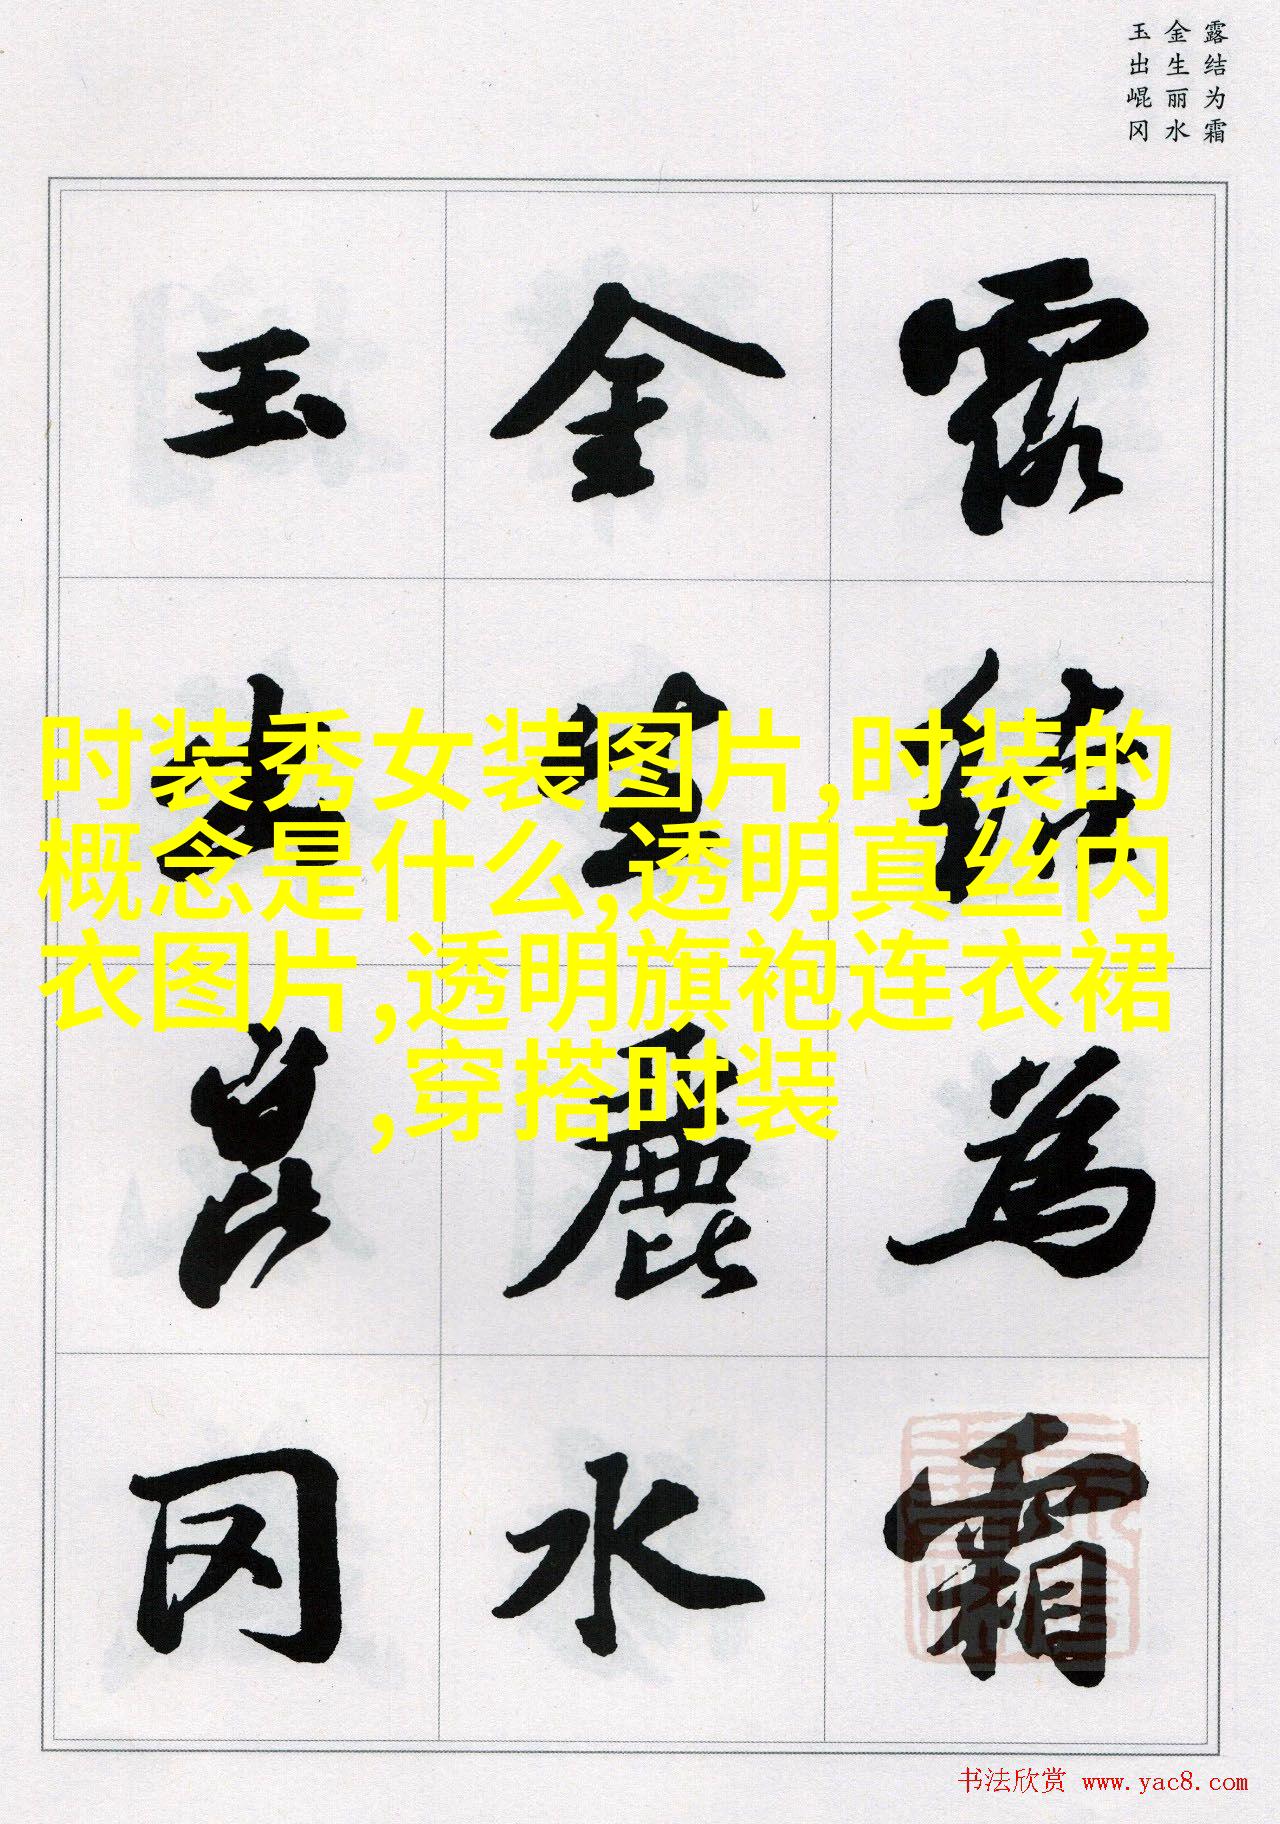 露结为霜
金生丽水
玉出崐冈
露結為霜
金生麗水
玉出崑冈
时装秀女装图片,时装的
概念是什么,透明真丝内
衣图片,透明旗袍连衣裙
,穿搭时装
书法欣赏 www.yac8.com